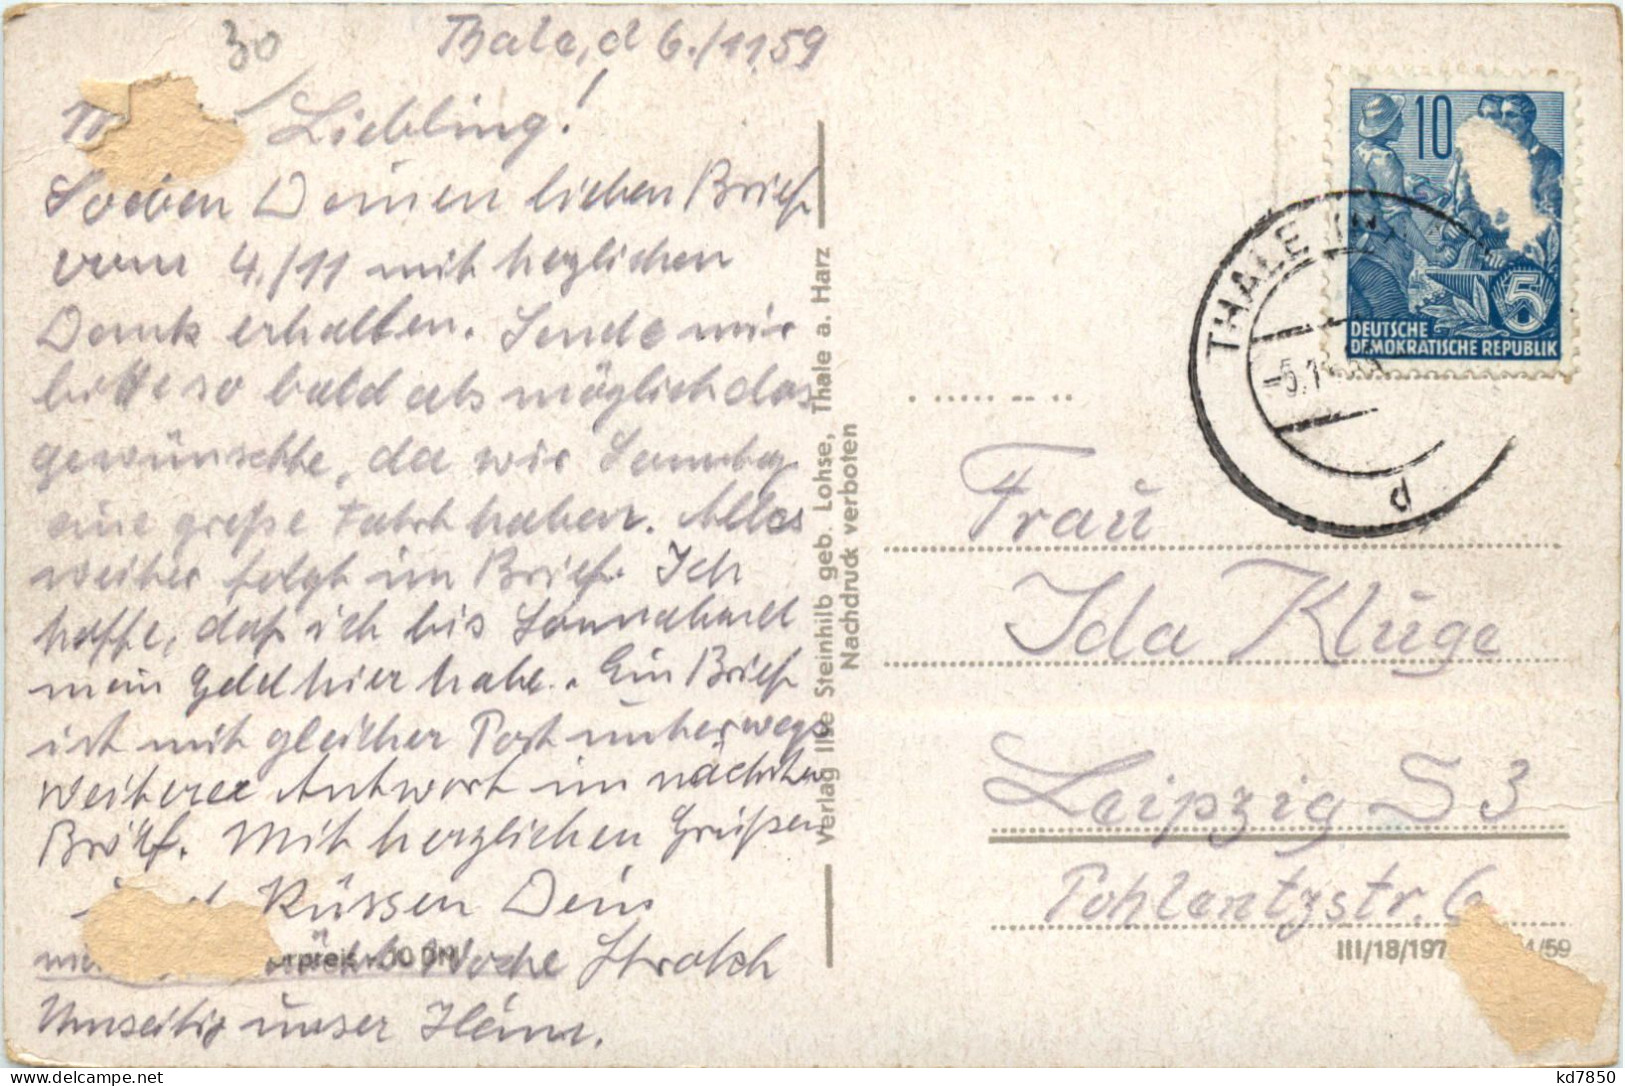 30
Thale, d 6./11.59
Liebling!
Soeben Deinen lieben Brief
vom 4./11 mit herzlichen
Dank erhalten. Sende mir
bitte so bald als möglich das
gewünschte, da wir Sonntag
eine große Fahrt haben. Alles
weitere folgt im Brief. Ich
hoffe, daß ich bis Sonnabend
mein Geld hier habe. Ein Brief
ist mit gleicher Post unterwegs
weitere Antwort im nächsten
Brief. Mit herzlichen Grüßen
Küssen Dein
Woche Strolch
Umseitig unser Heim.
Verlag Ilse Steinhilb geb. Lohse, Thale a. Harz
Nachdruck verboten
10
5
DEUTSCHE
DEMOKRATISCHE REPUBLIK
THALE
-5.11.59
d
Frau
Ida Kluge
Leipzig S 3
Pohlentzstr. 6
III/18/197
/59
kd7850